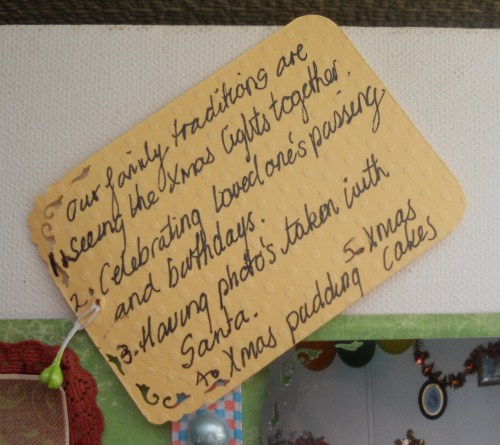 Our family traditions are
1. seeing the Xmas lights together.
2. Celebrating Loved one's passing
and birthdays.
3. Having photo's taken with
Santa. 5. Xmas
4. Xmas pudding cakes